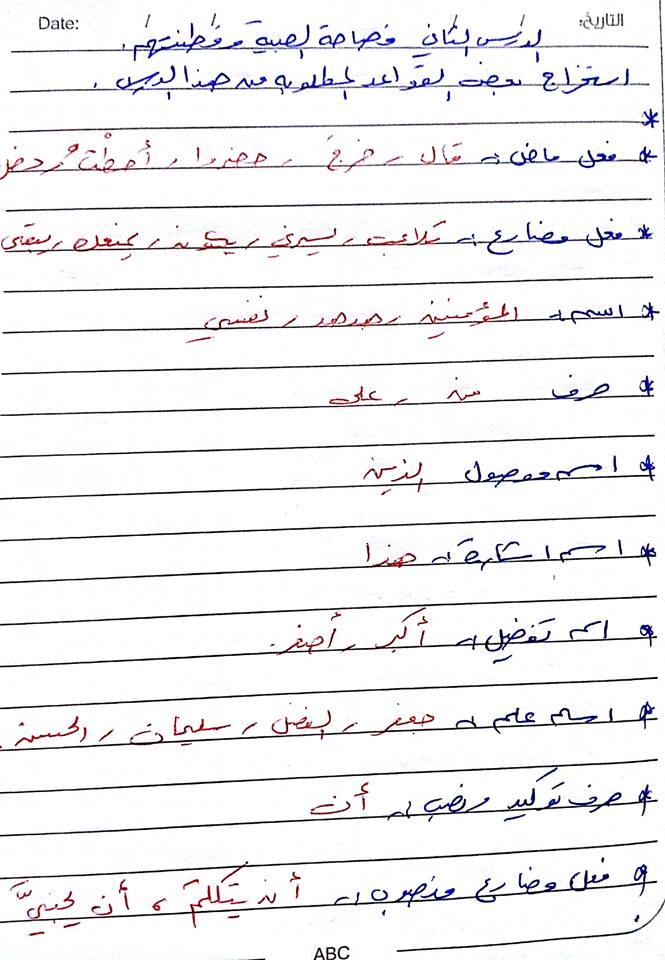 Date: التاريخ:
الدرس الثاني فصاحة الصبية وفطنتهم.
استخراج بعض القواعد المطلوبة من هذا الدرس.
*
* فعل ماض :- قال ، خرجَ ، حضروا ، أحطْتُ ، دخل
* فعل مضارع :- تلاعب ، يسرني ، يكون ، يمنعك ، يبقى
* اسم :- المؤمنين ، نفسي
* حرف من ، على
* اسم موصول الذين
* اسم اشارة :- هذا
* اسم تفضيل :- أكبر ، أصغر.
* اسم علم :- جعفر ، الفضل ، سليمان ، الحسن.
* حرف توكيد ونصب :- أن
* فعل مضارع منصوب :- أن يتكلمَ ، أن يحييَّ
ABC